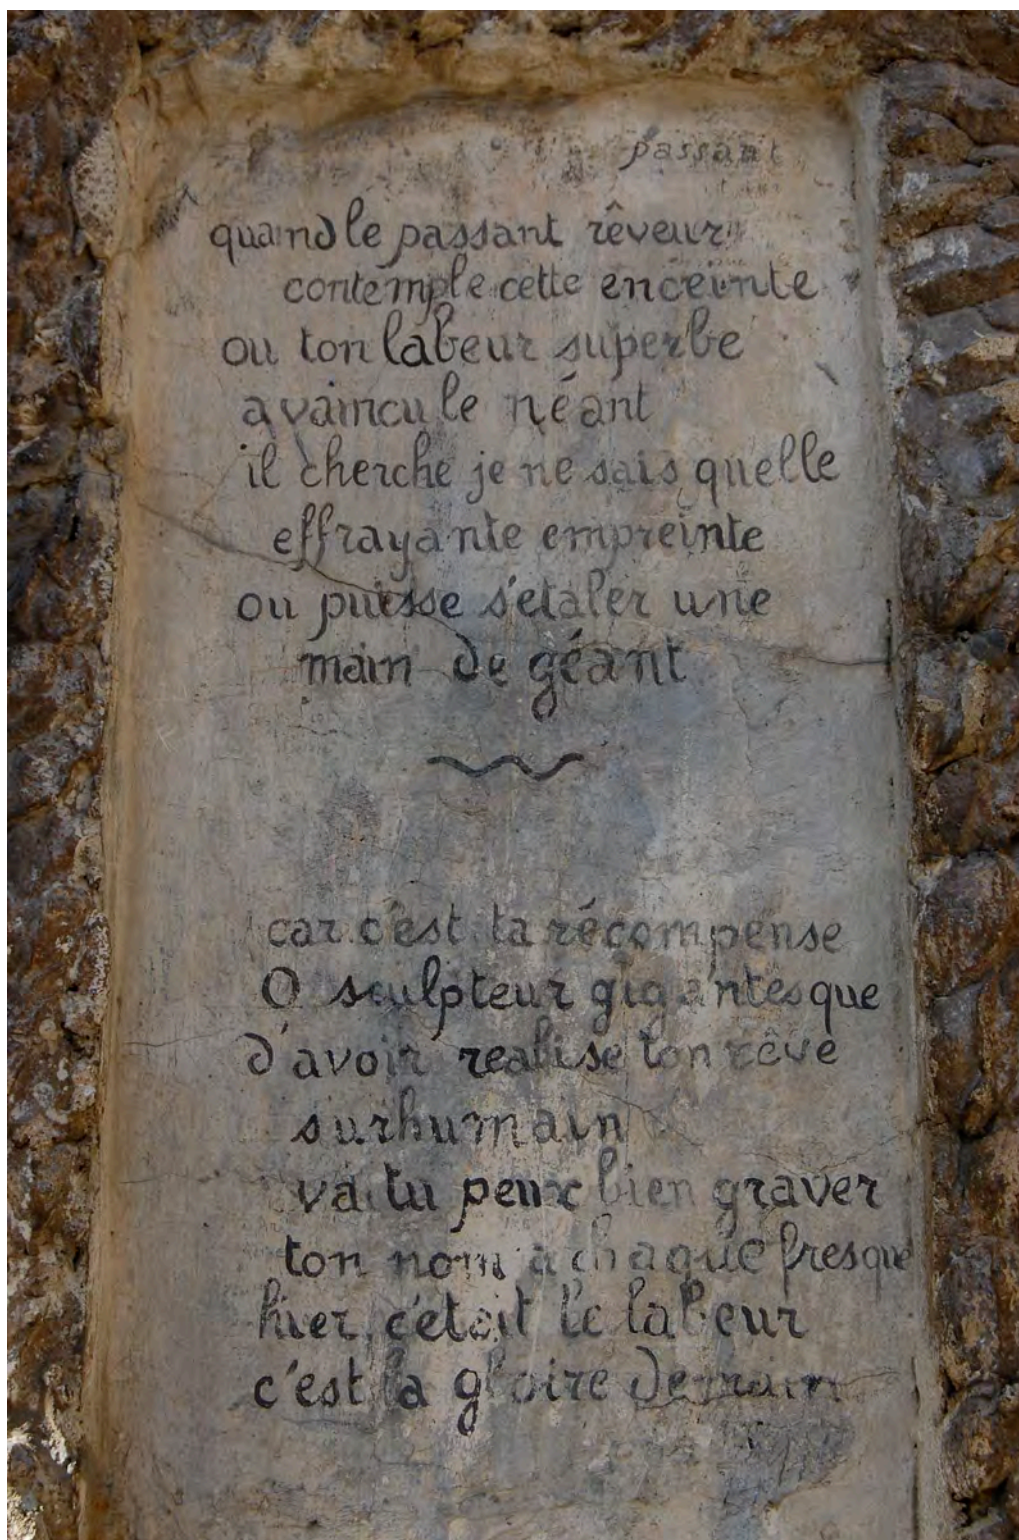 passant
quand le passant rêveur
contemple cette enceinte
ou ton labeur superbe
a vaincu le néant
il cherche je ne sais quelle
effrayante empreinte
ou puisse s'etaler une
main de géant
car c'est ta récompense
O sculpteur gigantesque
d'avoir realise ton rêve
surhumain
va tu peux bien graver
ton nom a chaque fresque
hier c'etait le labeur
c'est la gloire demain